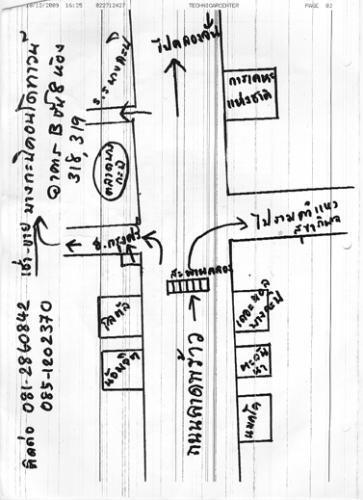 10/12/2009 16:25 022712427 TECHNICARCENTER PAGE 02
เช่า-ขาย บางกะปิคอนโดทาวน์
อาคาร B ชั้น 8 ห้อง
318, 319
ติดต่อ 081-2860842
085-1202370
ไปคลองจั่น
การเคหะ
แห่งชาติ
ร.ร. บางกะปิ
ตลาดบาง
กะปิ
ไปรามคำแหง
สะพานคลอง
โลตัส
น้อมจิต
เดอะมอลล์
บางกะปิ
ตะวัน
นา
แมคโค
ถนนลาดพร้าว